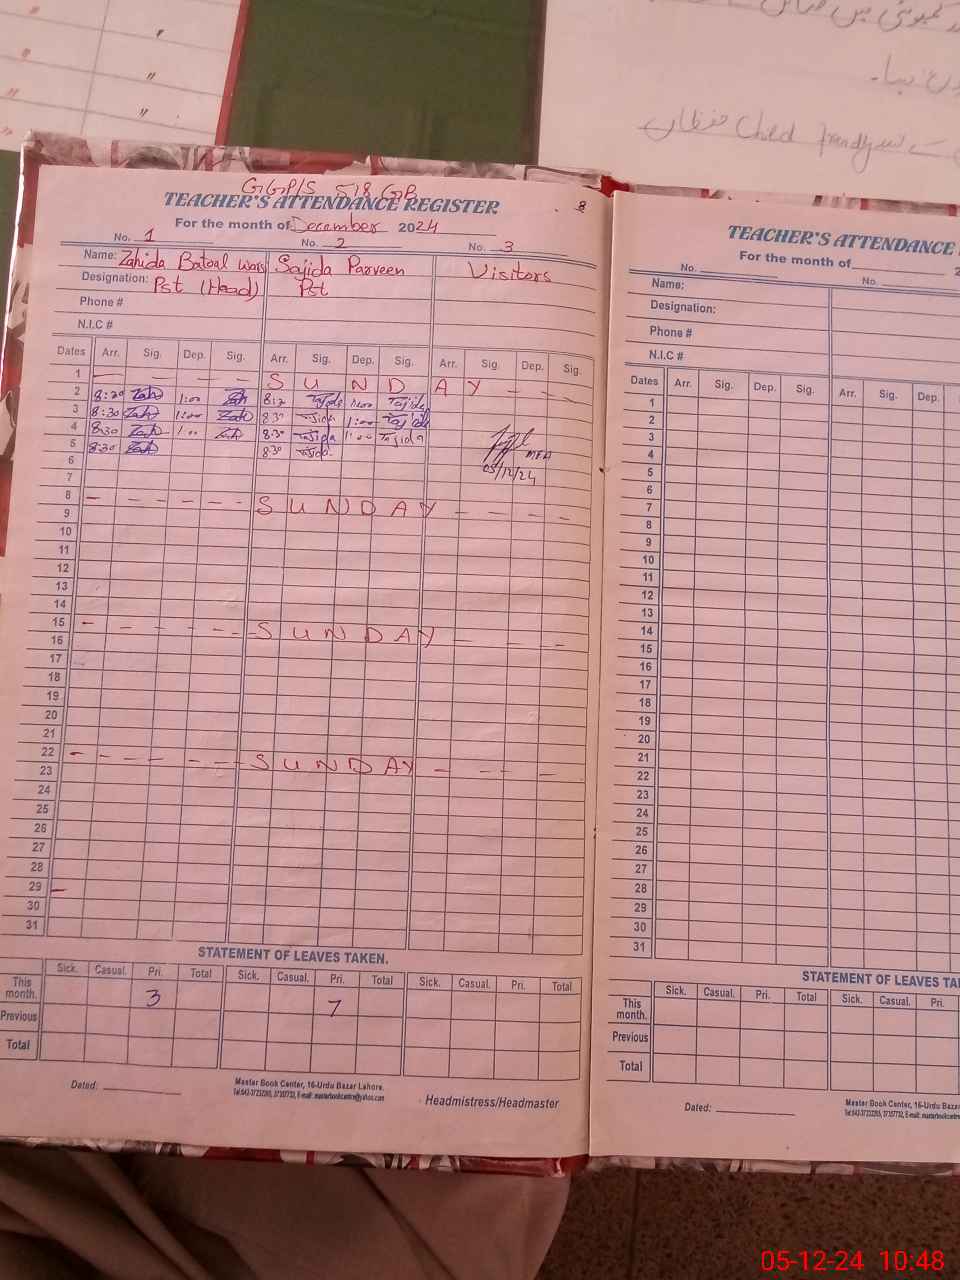 "
"
"
"
"
Child friendly
GGP/S 518 GP
TEACHER'S ATTENDANCE REGISTER 8
For the month of December 2024
No. 1 No. 2 No. 3
Name: Zahida Batoal Sajida Parveen Visitors
Designation: Pst (Head) Pst
Phone #
N.I.C #
Dates Arr. Sig. Dep. Sig. Arr. Sig. Dep. Sig. Arr. Sig. Dep. Sig.
1 — — — — S U N D A Y — —
2 8:30 Zah 1:00 Zah Sajida 1:00 Sajida
3 8:30 Zah 1:00 Zah 8:30 Sajida 1:00 Sajida
4 8:30 Zah 1:00 Zah 8:30 Sajida 1:00 Sajida
5 8:30 Zah 8:30 Sajida
MEA
05/12/24
6
7
8 — — — — — — S U N D A Y — — — —
9
10
11
12
13
14
15 — — — — — — S U N D A Y — — — —
16
17
18
19
20
21
22 — — — — — — — S U N D A Y — — — —
23
24
25
26
27
28
29 —
30
31
STATEMENT OF LEAVES TAKEN.
Sick. Casual. Pri. Total Sick. Casual. Pri. Total Sick. Casual. Pri. Total
This month. 3 7
Previous
Total
Dated:
Master Book Center, 16-Urdu Bazar Lahore.
Headmistress/Headmaster
TEACHER'S ATTENDANCE
For the month of
No. No.
Name:
Designation:
Phone #
N.I.C #
Dates Arr. Sig. Dep. Sig. Arr. Sig. Dep.
1
2
3
4
5
6
7
8
9
10
11
12
13
14
15
16
17
18
19
20
21
22
23
24
25
26
27
28
29
30
31
STATEMENT OF LEAVES TA
Sick. Casual. Pri. Total Sick. Casual. Pri.
This month.
Previous
Total
Dated:
Master Book Center, 16-Urdu Baz
05-12-24 10:48